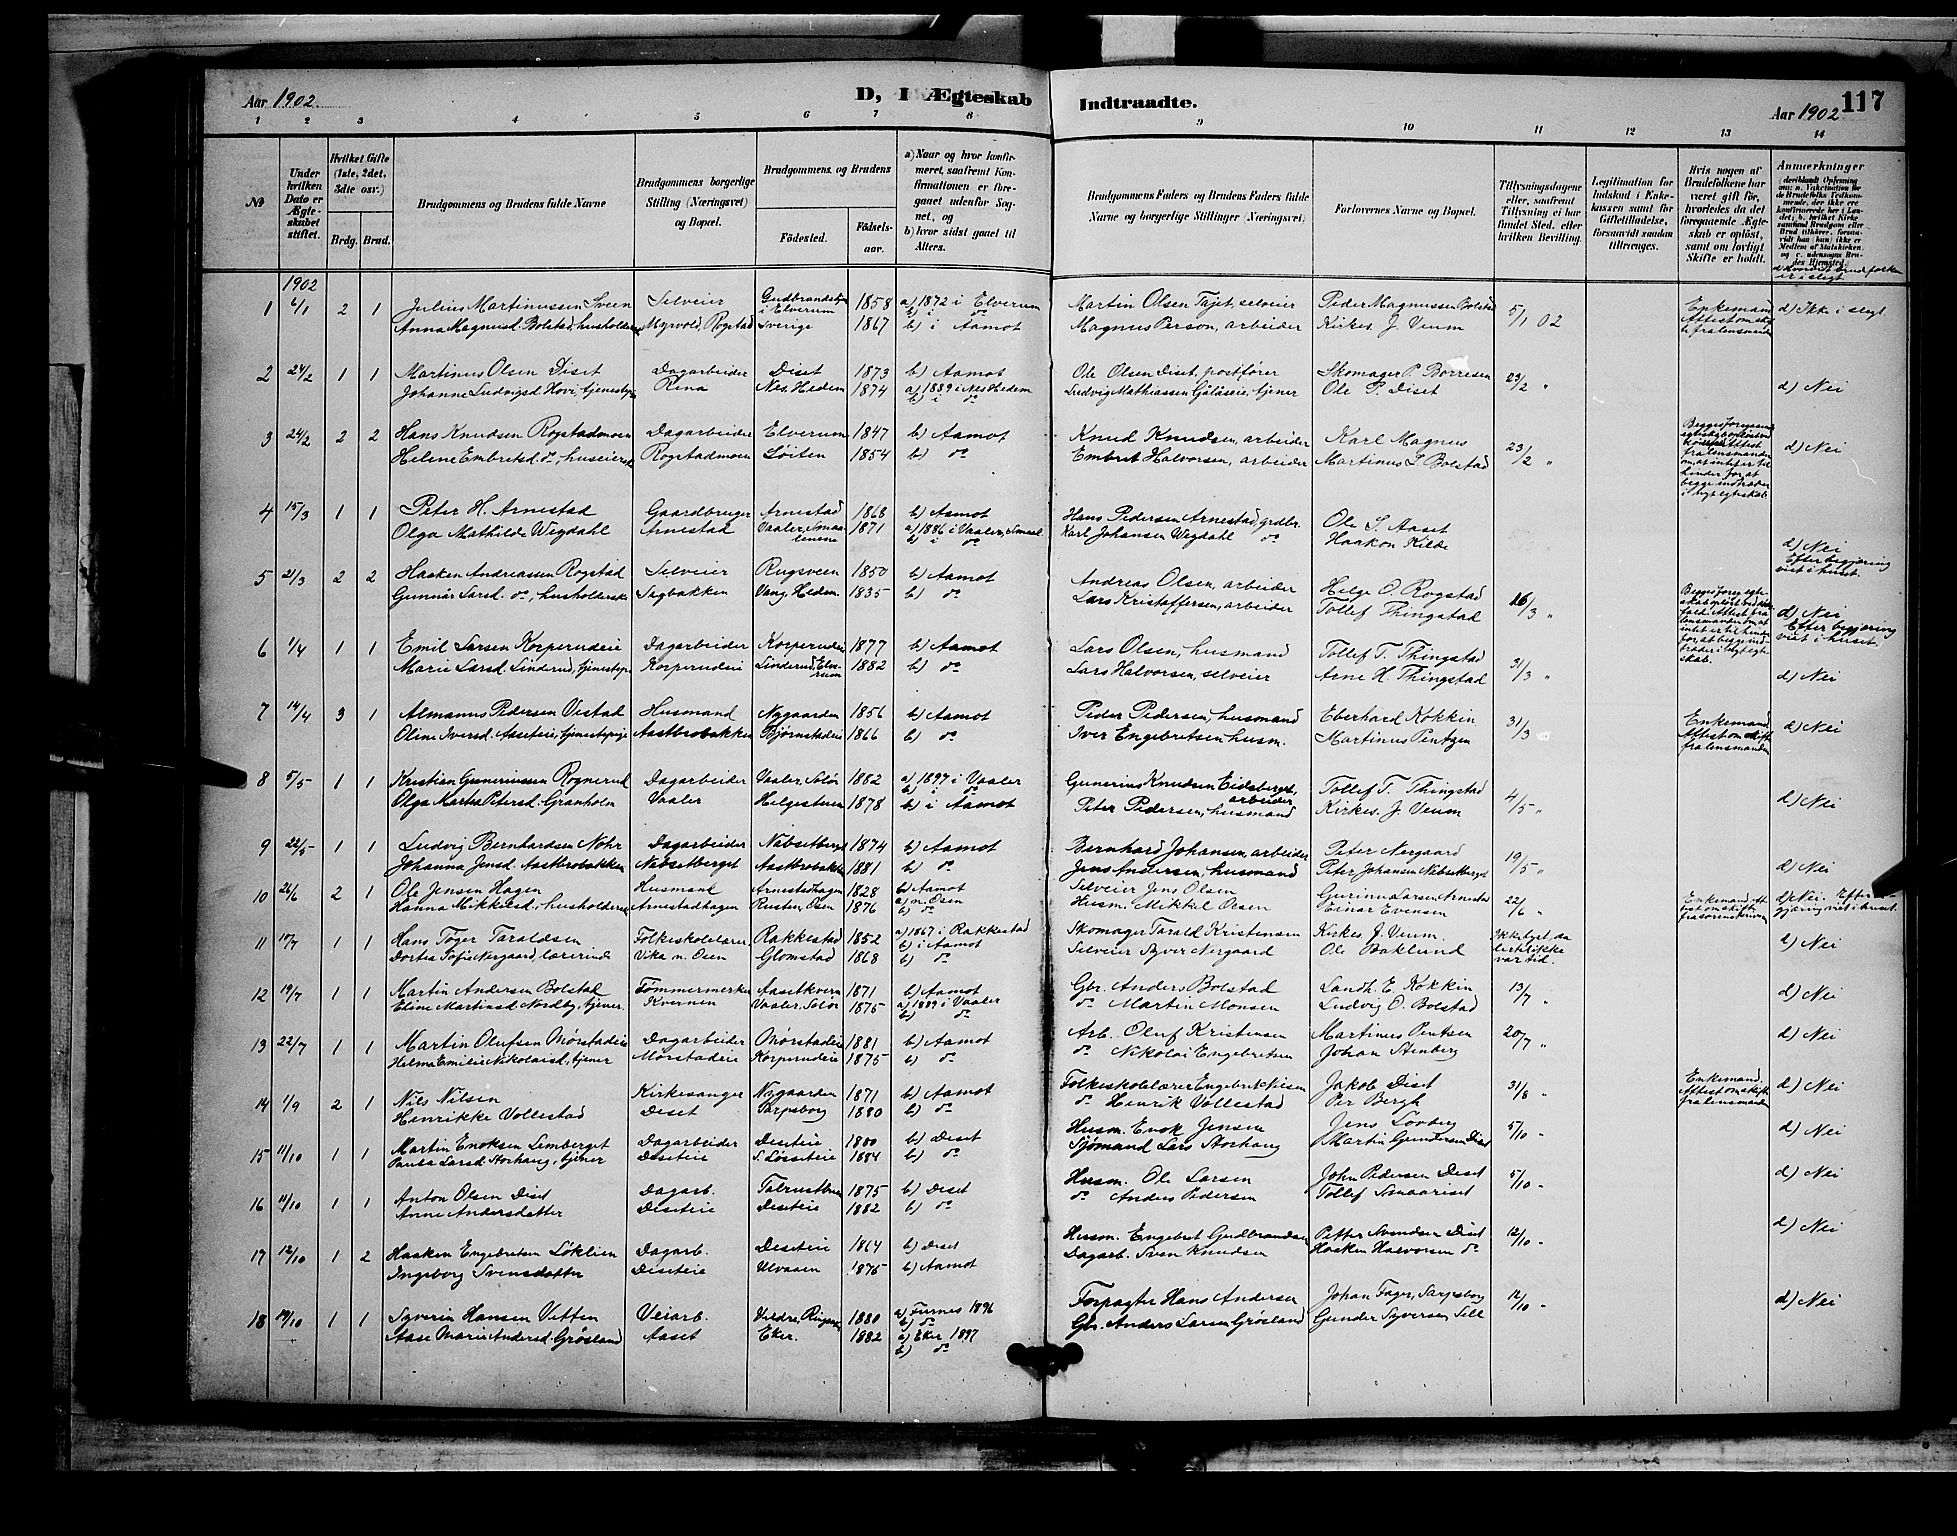 Aar 1902. D, I Ægteskab Indtraadte. Aar 1902 117
1 2 3 4 5 6 7 8 9 10 11 12 13 14
№
Under hvilken Dato er Ægteskabet stiftet.
Hvilket Gifte (1ste, 2det, 3die osv.)
Brdg. Brud.
Brudgommens og Brudens fulde Navne
Brudgommens borgerlige Stilling (Næringsvei) og Bopæl.
Brudgommens og Brudens
Fødested. Fødselsaar.
a) Naar og hvor konfirmeret, saafremt Konfirmationen er foregaaet udenfor Sognet, og
b) hvor sidst gaaet til Alters.
Brudgommens Faders og Brudens Faders fulde Navne og borgerlige Stillinger (Næringsvei)
Forlovernes Navne og Bopæl.
Tillysningsdagene eller, saafremt Tillysning ei har fundet Sted, efter hvilken Bevilling.
Legitimation for Indskud i Enkekassen samt for Giftetilladelse, forsaavidt saadan tiltrænges.
Hvis nogen af Brudefolkene har været gift før, hvorledes da det foregaaende Ægteskab er opløst, samt om lovligt Skifte er holdt.
Anmærkninger
d. hvorvidt brudefolkene er i slegt
1902
1 6/1 2 1 Julius Martinussen Sveen Selveier Gudbrandstjn i Elverum 1858 a) 1872 i Elverum b) i do Martin Olsen Tajet, selveier Peder Magnussen Bolstad 5/1 02 Enkemand Attest om skifte fra lensmanden d) Ikke i slegt
Anna Magnusd. Bolstad, husholderske Myrvold, Rogstad Sverige 1867 b) i Aamot Magnus Person, arbeider Kirkes. J. Veum
2 24/2 1 1 Martinus Olsen Diset Dagarbeider Diset 1873 b) Aamot Ole Olsen Diset, postfører Skomager P. Borresen 23/2 " d) Nei
Johanne Ludvigsd. Hovi, tjenestepi Rena Nes Hedem 1874 a) 1889 i Nes Hedem b) i do Ludvig Mathiassen Gålåseie, tjener Ole P. Diset
3 24/2 2 2 Hans Knudsen Rogstadmoen Dagarbeider Elverum 1847 b) Aamot Knud Knudsen, arbeider Karl Magnus 23/2 " d) Nei
Helene Embretsd. do, huseierske Rogstadmoen Løiten 1854 b) do Embret Halvorsen, arbeider Martinus L. Bolstad
4 15/3 1 1 Peter H. Arnestad Gaardbruger Arnestad 1868 b) Aamot Hans Pedersen Arnestad, grdbr. Ole S. Aaset d) Nei
Olga Mathilde Wegdahl Arnestad Vaaler, Smaalenene 1871 a) 1886 i Vaaler, Smaal b) i do Karl Johansen Wegdahl do Haakon Kilde Efter begjæring viet i huset.
5 21/3 2 2 Haaken Andreassen Rogstad Selveier Rugsveen 1850 b) Aamot Andreas Olsen, arbeider Helge O. Rogstad 16/3 " d) Nei Efter begjæring viet i huset.
Gunnår Larsd. do, husholderske Sagbakken Vang, Hedem. 1835 b) do Lars Kristoffersen, arbeider Tollef Thingstad
6 1/4 1 1 Emil Larsen Korperudeie Dagarbeider Korperudeie 1877 b) Aamot Lars Olsen, husmand Tollef T. Thingstad 31/3 " d) Nei
Marie Larsd. Linderud, tjenestepi Korperudeie Linderud, Elverum 1882 b) do Lars Halvorsen, selveier Arne H. Thingstad
7 14/4 3 1 Almanus Pedersen Vestad Husmand Nygaarden 1856 b) Aamot Peder Pedersen, husmand Eberhard Kokkin 31/3 Enkemand Attest om skifte fra lensmanden d) Nei
Oline Iversd. Aaseteie, tjenestepige Aastbrobakken Bjørnstadeie 1866 b) do Iver Engebretsen husm. Martinus Pentzen
8 5/5 1 1 Kristian Gunerinssen Rognerud Dagarbeider Vaaler, Solør 1882 a) 1897 i Vaaler b) i do Gunerius Knudsen Eidsberget, arbeider Tollef T. Thingstad 4/5 " d) Nei
Olga Martea Petersd. Granholen Vaaler Helgesteuen 1878 b) i Aamot Peter Pedersen, husmand Kirkes. J. Veum
9 22/5 1 1 Ludvig Bernhardsen Nohr Dagarbeider Nabsetberget 1874 b) Aamot Bernhard Johansen, arbeider Peter Nergaard 19/5 " d) Nei
Johanna Jensd. Aastbrobakken Nabsetberget Aastbrobakk 1881 b) do Jens Andersen, husmand Peter Johansen Nabsetberget
10 26/6 2 1 Ole Jensen Hagen Husmand Arnestadhagen 1828 b) Aamot Selveier Jens Olsen Gurinus Larsen Arnestad 22/6 " d) Nei. Efter begjæring viet i huset.
Hanna Mikkelsd. husholderske Arnestadhagen Rusten, Osen 1876 a) n. Osen b) do Husm. Mikkel Olsen Einar Evensen
11 17/7 1 1 Hans Tøger Taraldsen Folkeskolelærer Rakkestad 1852 a) 1867 i Rakkestad b) i Aamot Skomager Tarald Kristensen Kirkes. J. Veum Ikke lyst, da dertil ikke var tid. d) Nei
Dortea Sofie Nergaard, lærerinde Vika n. Osen Glomstad 1868 b) do Selveier Syver Nergaard Ole Baklund
12 19/7 1 1 Martin Andersen Bolstad Tømmermerker Aasetkvern 1871 b) Aamot Gbr. Anders Bolstad Landh. E. Kokkin 13/7 " d) Nei
Eline Martinsd. Nordby, tjener. Kvernen Vaaler, Solør 1875 a) 1889 i Vaaler b) do do Martin Monsen Ludvig O. Bolstad
13 22/7 1 1 Martin Olufsen Mørstadeie Dagarbeider Mørstadeie 1881 b) Aamot Arb. Oluf Kristensen Martinus Pentzen 20/7 " d) Nei
Helma Emilie Nikolaisd, tjener Mørstadeie Korperudeie 1875 b) do do Nikolai Engebretsen Johan Stenberg
14 1/9 2 1 Nils Nilsen Kirkesanger Nygaarden 1871 b) Aamot Folkeskolelærer Engebrik Nilsen Jakob Diset 31/8 " Enkemand. Attest om skifte fra lensmanden d) Nei
Henrikke Vollestad Diset Sarpsborg 1880 b) do do Henrik Vollestad Per Bergh
15 11/10 1 1 Martin Enoksen Lemberget Dagarbeider Diseteie 1880 b) Diset Husm. Enok Jensen Jens Løvberg 5/10 " d) Nei
Paula Larsd. Storhaug, tjener Diseteie S. Løsseteie 1884 b) do Sjømand Lars Storhaug Martin Gundersen Diset
16 11/10 1 1 Anton Olsen Diset Dagarb. 1875 b) Diset Husm. Ole Larsen John Pedersen Diset 5/10 " d) Nei
Anne Andersdatter Diseteie Diseteie 1882 b) do do Anders Pedersen Tollef Smaariset
17 12/10 1 2 Haaken Engebretsen Løklien Dagarb. Diseteie 1864 b) Diset Husm. Engebret Gudbrandsen Petter Svendsen Diset 12/10 " d) Nei
Ingeborg Svensdatter Diseteie Ulvaaen 1875 b) Aamot Dagarb. Sven Knudsen Haaken Halvorsen do
18 19/10 1 1 Syverin Hansen Vetten Veiarb. 1880 a) Furnes 1896 b) do Forpagter Hans Andersen Johan Fager, Sarpsborg 12/10 " d) Nei
Aase Marie Andersd. Grøsland Aaset Eker. 1882 a) Eker 1897 b) do Gbr. Anders Larsen Grøsland Gunder Syversen Sell